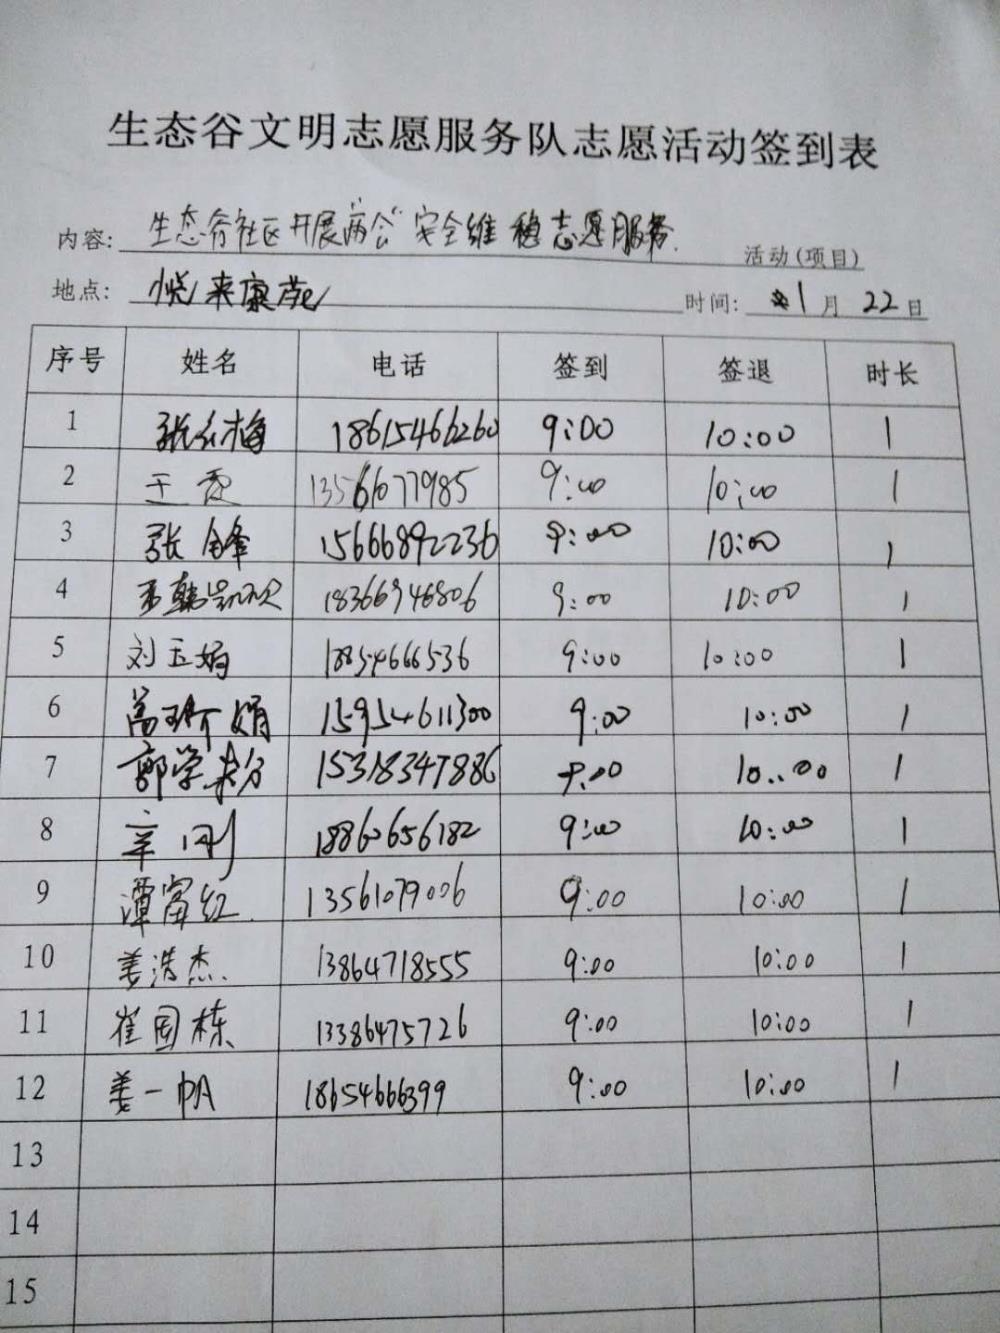 生态谷文明志愿服务队志愿活动签到表
内容: 生态谷社区开展两会"安全维稳志愿服务 活动(项目)
地点: 悦来康苑 时间: 1月22日
序号 姓名 电话 签到 签退 时长
1 张红梅 18615466260 9:00 10:00 1
2 王霞 13566077985 9:00 10:00 1
3 张锋 15666892236 9:00 10:00 1
4 18366946806 9:00 10:00 1
5 刘玉娟 18854666536 9:00 10:00 1
6 高娟 15954611300 9:00 10:00 1
7 郭学 15318347886 9:00 10:00 1
8 辛刚 18860656182 9:00 10:00 1
9 潭富红 13561079006 9:00 10:00 1
10 姜浩杰 13864718555 9:00 10:00 1
11 崔国栋 13386475726 9:00 10:00 1
12 姜一帆 18654666399 9:00 10:00 1
13
14
15